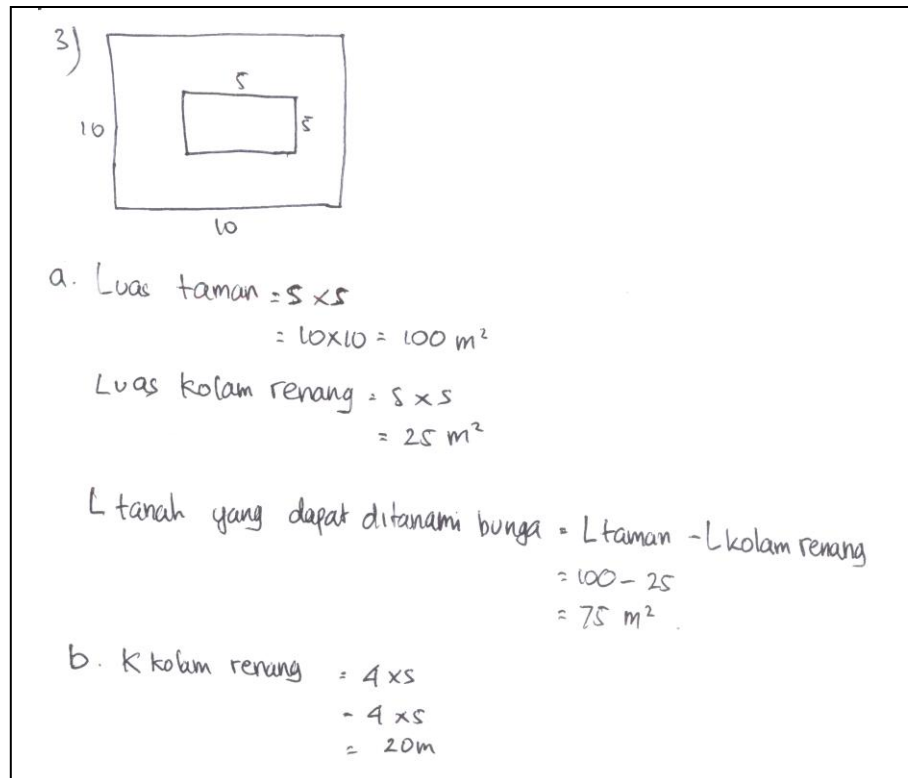 3)
5
10
5
10
a. Luas taman = s x s
= 10x10 = 100 m²
Luas kolam renang = s x s
= 25 m²
L tanah yang dapat ditanami bunga = L taman - L kolam renang
= 100 - 25
= 75 m².
b. K kolam renang = 4 x s
= 4 x 5
= 20m